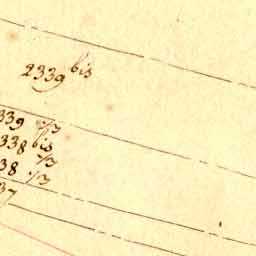 2339 bis
339
338 bis
38
37